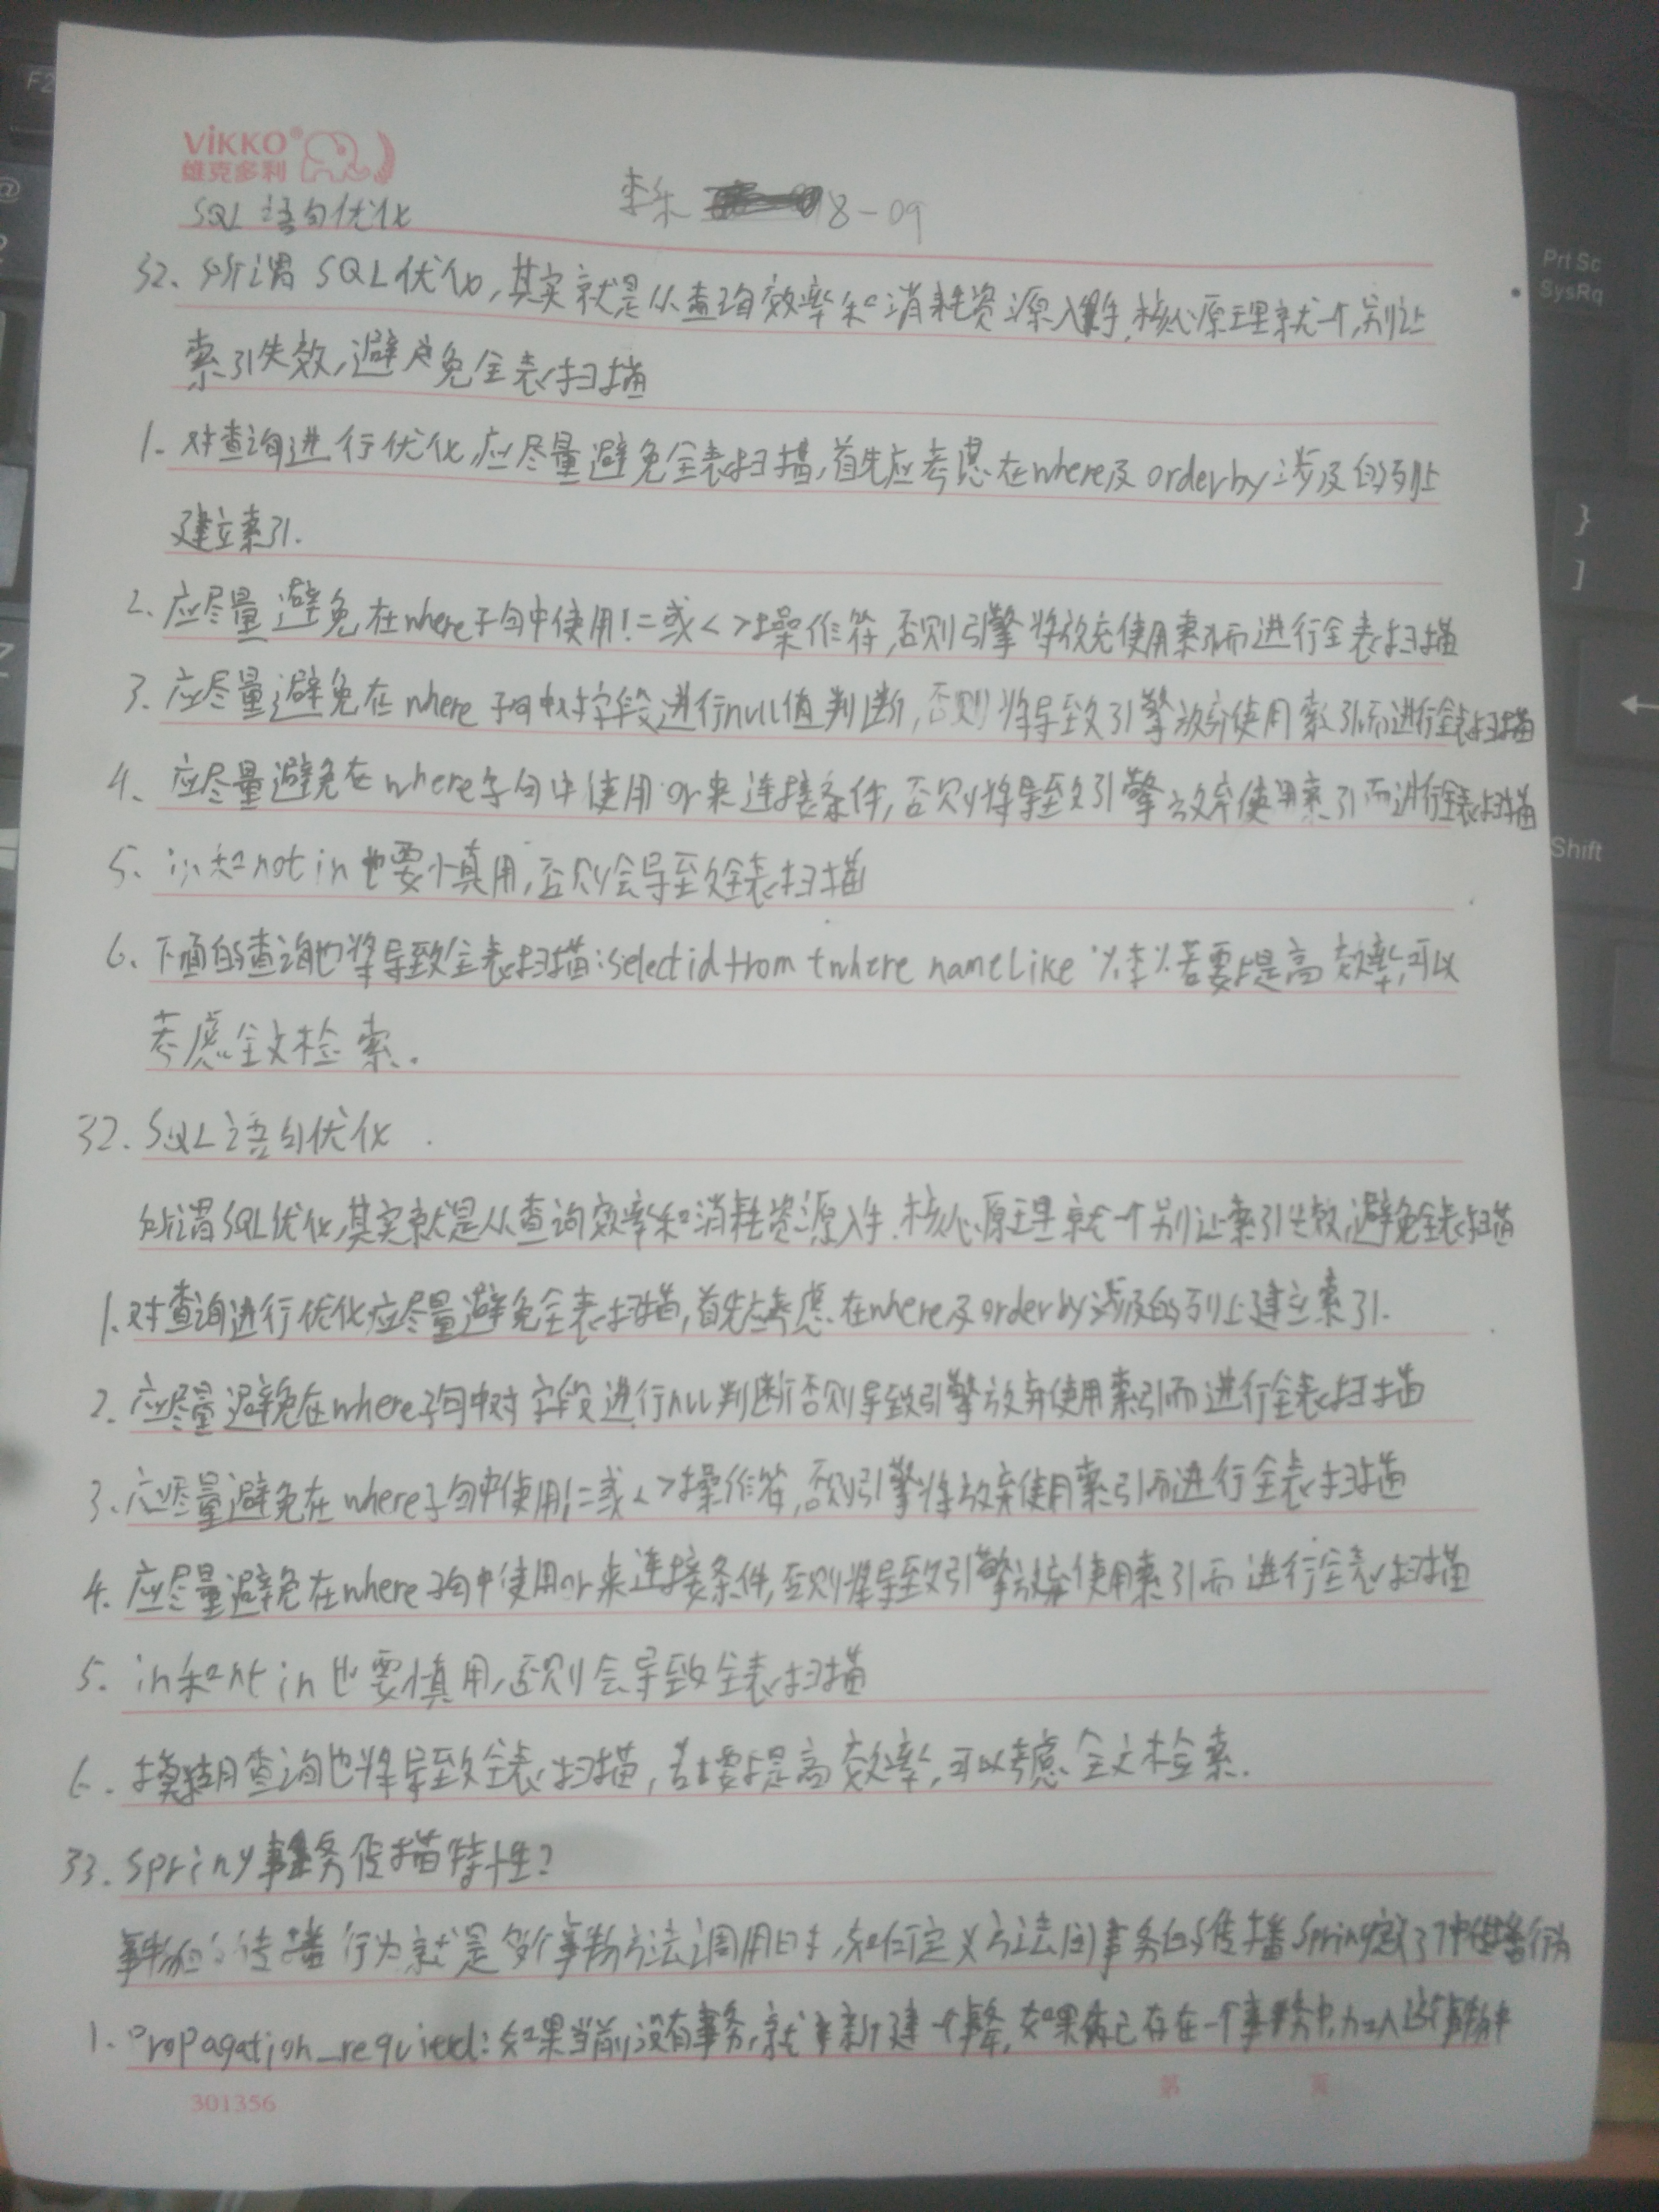 ViKKO®
维克多利
SQL 语句优化 李乐 18-09
32. 所谓 SQL优化,其实就是从查询效率和消耗资源入手.核心原理就一个,别让
索引失效,避免全表扫描
1. 对查询进行优化,应尽量避免全表扫描,首先应考虑在where及 orderby 涉及的列上
建立索引.
2. 应尽量避免在where子句中使用!=或<>操作符,否则引擎将放弃使用索引而进行全表扫描
3. 应尽量避免在 where 子句中对字段进行null值判断,否则将导致引擎放弃使用索引而进行全表扫描
4. 应尽量避免在where子句中使用or来连接条件,否则将导致引擎放弃使用索引而进行全表扫描
5. in和not in也要慎用,否则会导致全表扫描
6. 下面的查询也将导致全表扫描:select id from t where name like '%李%若要提高效率,可以
考虑全文检索.
32. SQL语句优化
所谓SQL优化,其实就是从查询效率和消耗资源入手.核心原理就一个别让索引失效,避免全表扫描
1. 对查询进行优化应尽量避免全表扫描,首先考虑在where及orderby涉及的列上建立索引.
2. 应尽量避免在where子句中对字段进行null判断否则导致引擎放弃使用索引而进行全表扫描
3. 应尽量避免在where子句中使用!=或<>操作符,否则引擎将放弃使用索引而进行全表扫描
4. 应尽量避免在where子句中使用or来连接条件,否则将导致引擎放弃使用索引而进行全表扫描
5. in和not in也要慎用,否则会导致全表扫描
6. 模糊查询也将导致全表扫描,若要提高效率,可以考虑全文检索.
33. Spring事务传播特性?
事物的传播行为就是多个事物方法调用时,如何定义方法间事务的传播Spring定义了7中传播行为
1. Propagation_required:如果当前没有事务,就新建一个事务,如果已存在一个事务中,加入这个事务中
301356
第 页
F2
@
2
Z
Prt Sc
SysRq
}
]
←
Shift